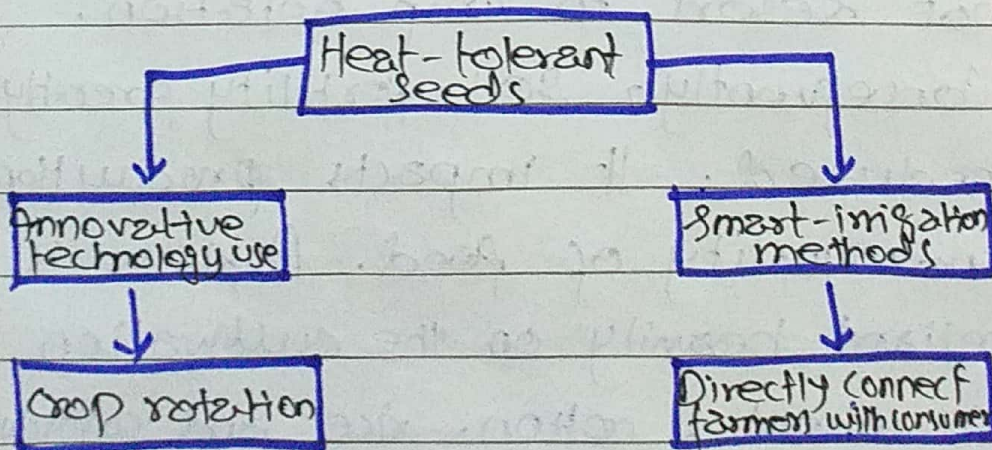 Heat-tolerant
seeds
Innovative
technology use
Smart-irrigation
methods
Crop rotation
Directly connect
farmers with consumer